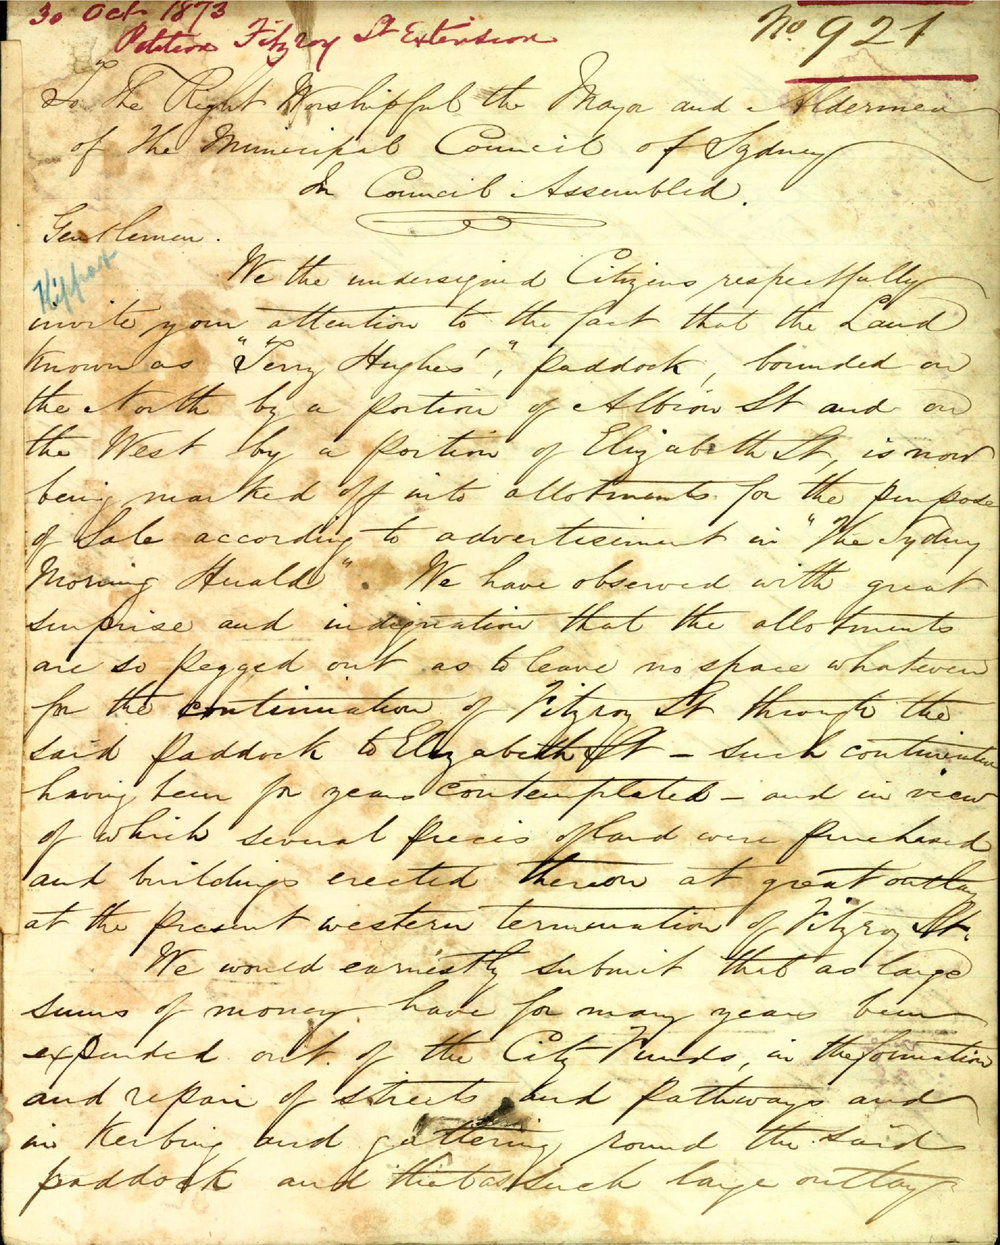 30 Oct 1873
Petition Fitzroy St Extension
No 921
To The Right Worshipful the Mayor and Aldermen
of the Municipal Council of Sydney
In Council Assembled.
Gentlemen.
Hippax
We the undersigned Citizens respectfully
invite your attention to the fact that the Land
known as "Terry Hughes'," paddock, bounded on
the North by a portion of Albion St and on
the West by a portion of Elizabeth St, is now
being marked off into allotments for the purpose
of Sale according to advertisement in "The Sydney
Morning Herald". We have observed with great
surprise and indignation that the allotments
are so pegged out as to leave no space whatever
for the continuation of Fitzroy St through the
said paddock to Elizabeth St – such continuation
having been for years contemplated – and in view
of which several pieces of land were purchased
and buildings erected thereon at great outlay
at the present western termination of Fitzroy St.
We would earnestly submit that as large
sums of money have for many years been
expended out of the City Funds, in the formation
and repair of streets and pathways and
in kerbing and guttering round the said
paddock and that as such large outlay